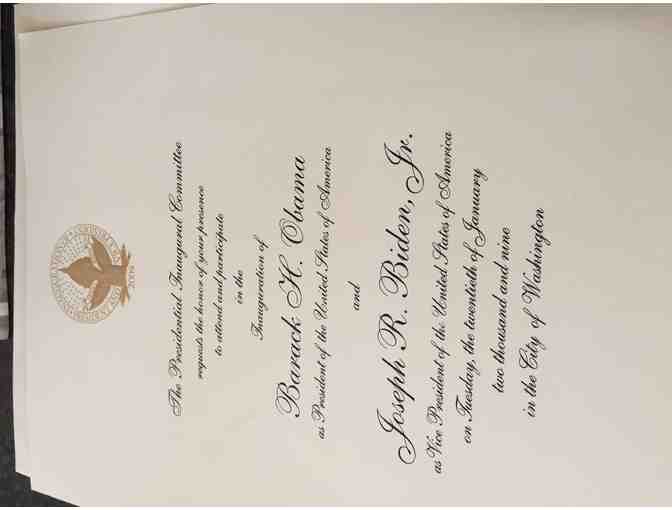 2009
The Presidential Inaugural Committee
requests the honor of your presence
to attend and participate
in the
Inauguration of
Barack H. Obama
as President of the United States of America
and
Joseph R. Biden, Jr.
as Vice President of the United States of America
on Tuesday, the twentieth of January
two thousand and nine
in the City of Washington